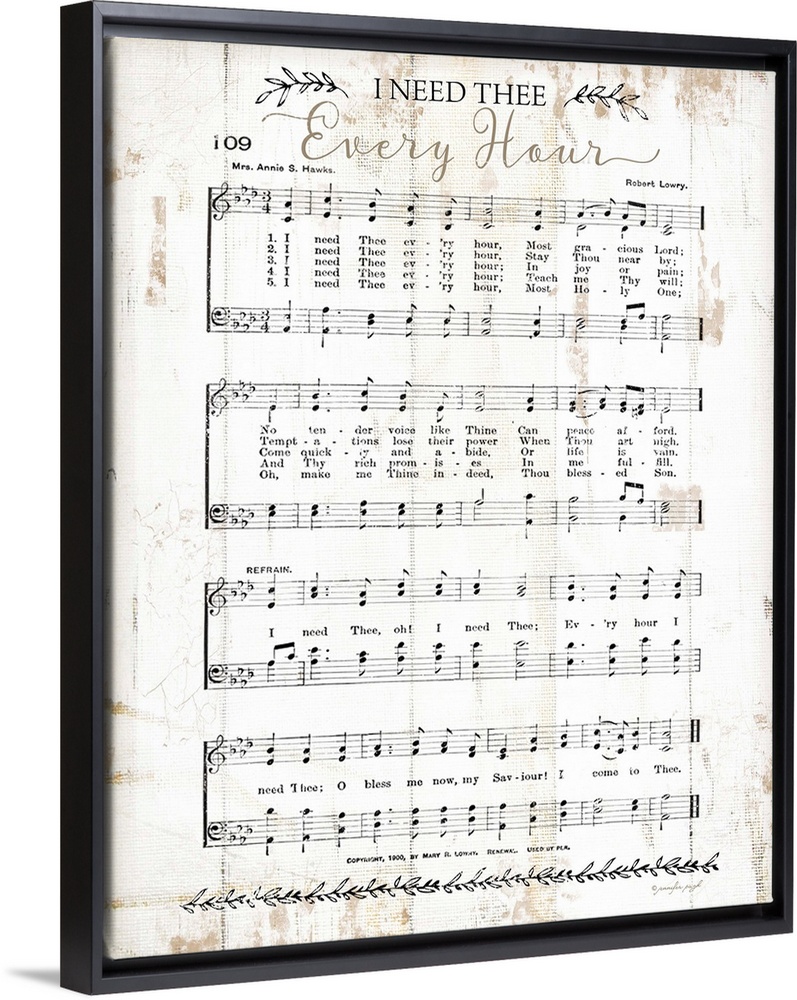 I NEED THEE
Every Hour
109
Mrs. Annie S. Hawks.
Robert Lowry.
1. I need Thee ev - 'ry hour, Most gra - cious Lord;
2. I need Thee ev - 'ry hour, Stay Thou near by;
3. I need Thee ev - 'ry hour; In joy or pain;
4. I need Thee ev - 'ry hour; Teach me Thy will;
5. I need Thee ev - 'ry hour, Most Ho - ly One;
No ten - der voice like Thine Can peace af - ford.
Tempt - a - tions lose their power When Thou art nigh.
Come quick - ly and a - bide, Or life is vain.
And Thy rich prom - is - es In me ful - fill.
Oh, make me Thine in - deed, Thou bless - ed Son.
REFRAIN.
I need Thee, oh! I need Thee; Ev - 'ry hour I
need Thee; O bless me now, my Sav - iour! I come to Thee.
COPYRIGHT, 1900, BY MARY R. LOWRY. RENEWAL. USED BY PER.
© jennifer pugh